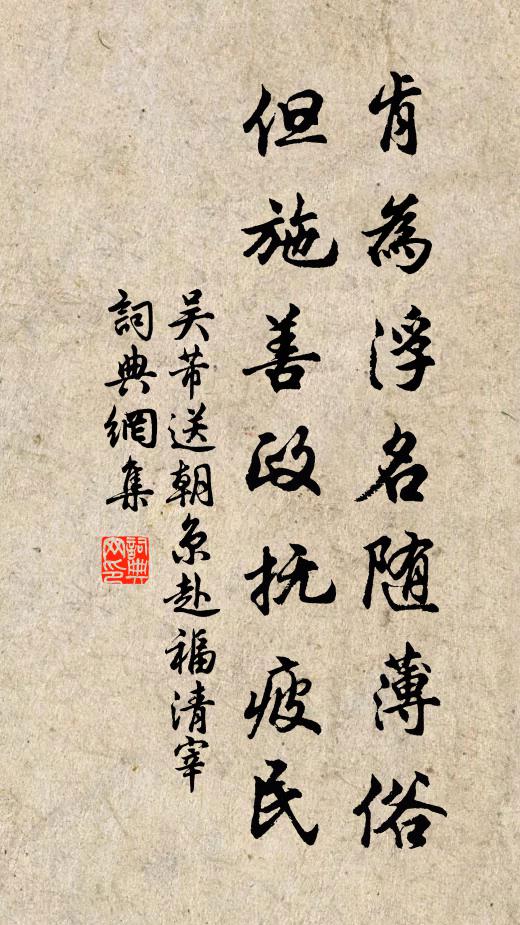 肯為浮名随薄俗
但施善政抚疲民
吴芾送朝京赴福清宰
詞典網集
詞典网印